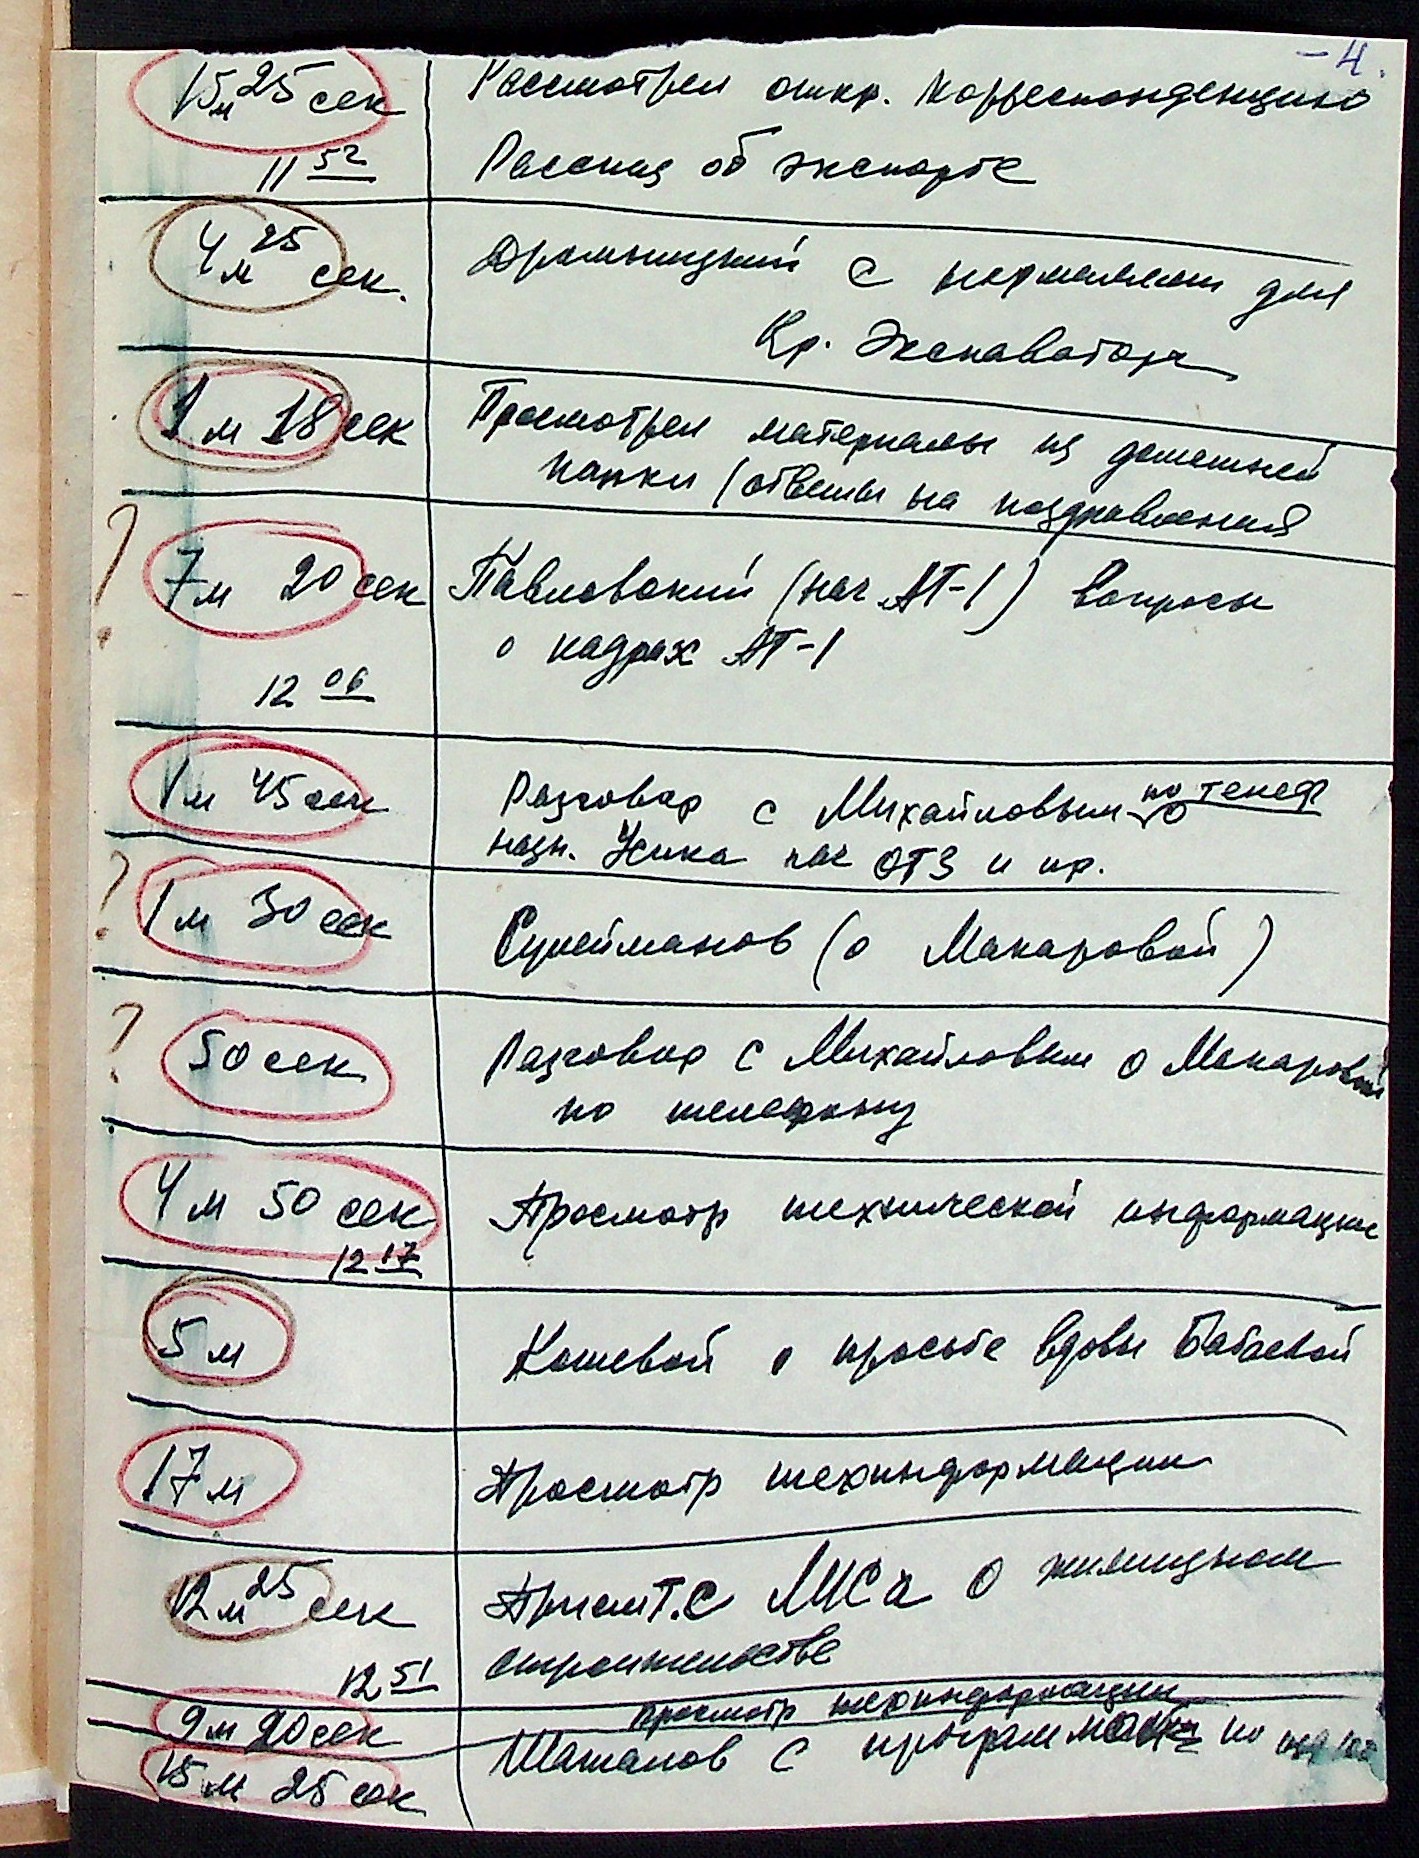 -4.
15 м 25 сек Рассмотрел откр. корреспонденцию
11 52 Рассказ об экспорте
4 м 25 сек. с для
Кр. Экскаватора
1 м 18 сек Просмотрел материалы из домашней
папки (ответы на поздравления
? 7 м 20 сек Павловский (нач АТ-1) вопросы
о кадрах АТ-1
12 06
1 м 45 сек Разговор с Михайловым по телеф о
назн. Усика нач ОТЗ и пр.
? 1 м 30 сек Сулейманов (о Макаровой)
? 50 сек Разговор с Михайловым о Макаровой
по телефону
4 м 50 сек Просмотр технической информации
12 17
5 м Кошевой о просьбе вдовы Бабаевой
17 м Просмотр техинформации
12 м 25 сек Прием т.с о жилищном
12 51 строительстве
9 м 20 сек Просмотр техинформации
15 м 25 сек Шаталов с программой по